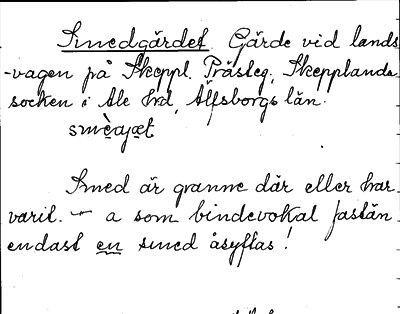 Smedgärdet. Gärde vid lands
-vägen på Skeppl. Prästeg, Skepplanda
socken i Ale hrd, Älfsborgs län.
smèajæt
Smed är granne där eller har
varit. — a som bindevokal fastän
endast en smed åsyftas!